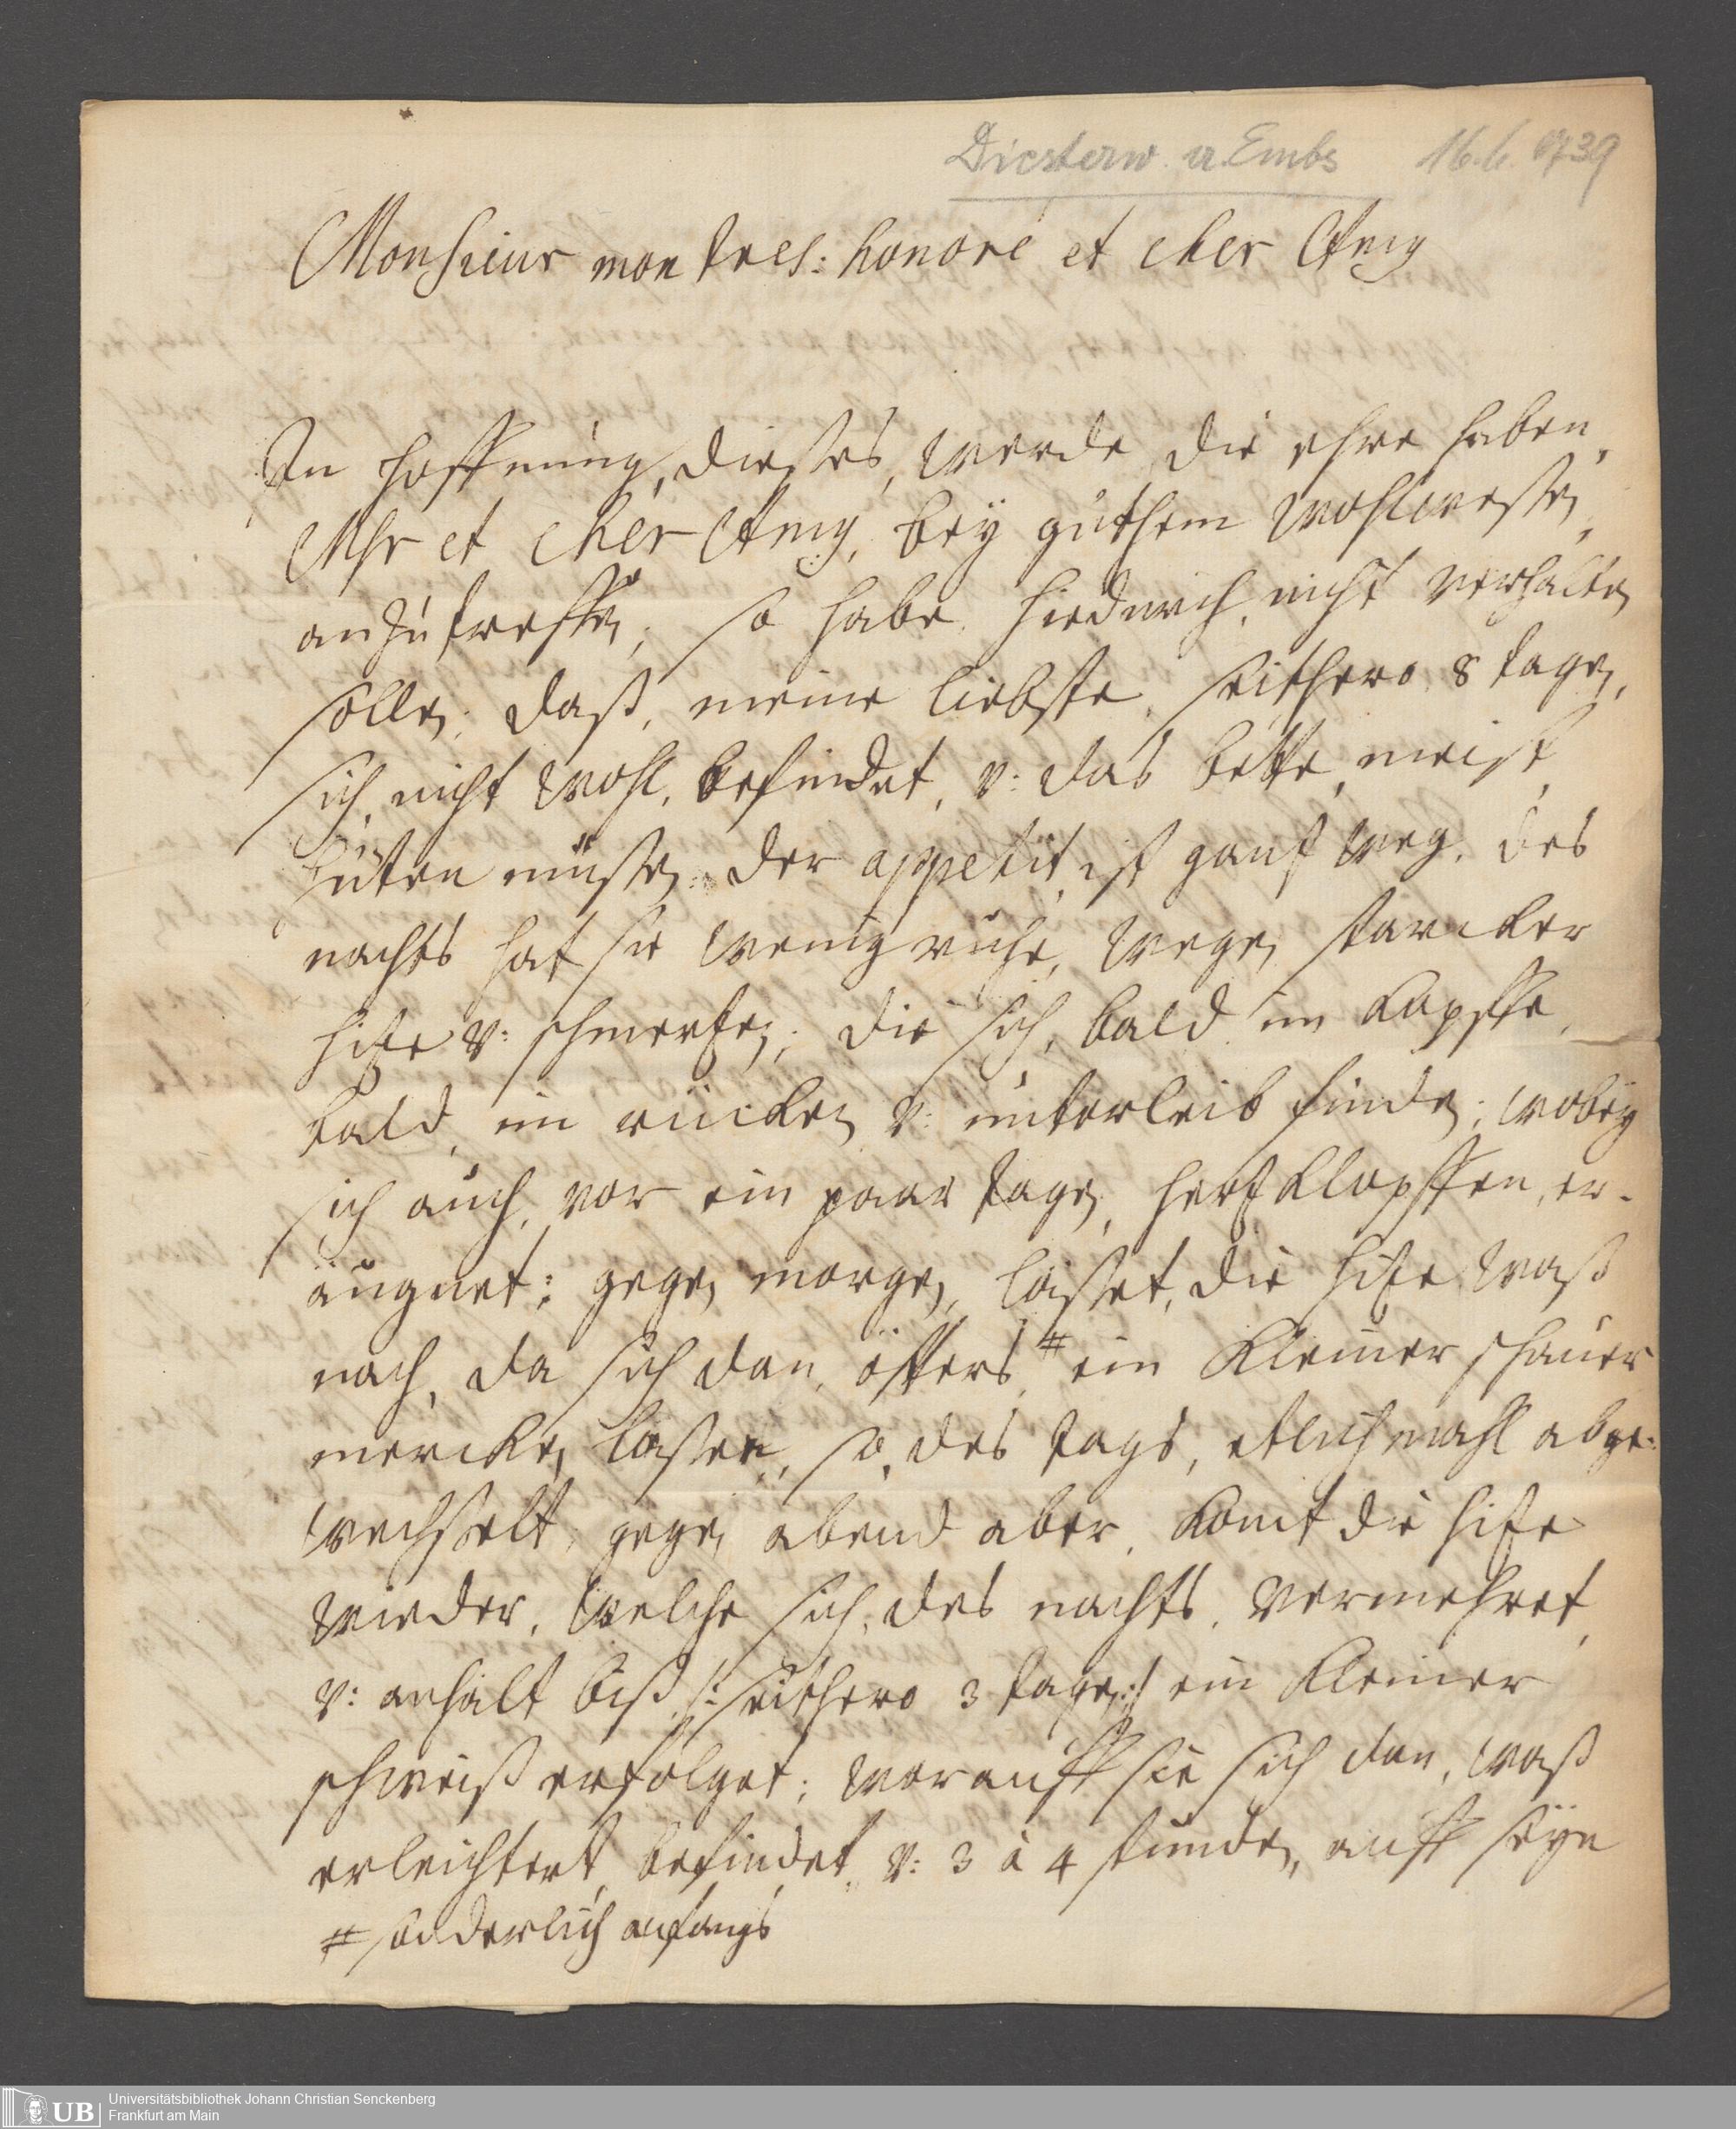 Diesterw. a. Embs 16.6. 1739
Monsieur mon tres: honoré et cher Amy
In hoffnung, dießes, werde die ehre haben,
Mhr et cher Amy, bey guthem wohlweßen,
anzutreffen, so habe hiedurch nicht verhalten
sollen; daß, meine liebste, seithero 8 tagen,
sich nicht wohl, befindet, v: das bette, meist,
hüten müßen. der appetit, ist gantz weg, des
nachts hat sie wenig ruhe, wegen starcker
hitze v: schmertzen; die sich, bald im kopffe,
bald, im rücken v: unterleib finden; wobey
sich auch, vor ein paar tagen, hertzklopffen, er-
äugnet; gegen morgen, läßet, die hitze, waß
nach, da sich dan, öffters # ein kleiner schauer
mercken laßen, so, des tags, etlich mahl abge-
wechßelt, gegen abend aber, komt die hitze
wieder, welche sich, des nachts, vermehret,
v: anhält biß /: seithero 3 tagen :/ ein kleiner
schweiß erfolget; worauff sie sich dan, waß
erleichtert befindet, v: 3 à 4 stunden, auff seyn
# sonderlich anfangs
UB
Universitätsbibliothek Johann Christian Senckenberg
Frankfurt am Main